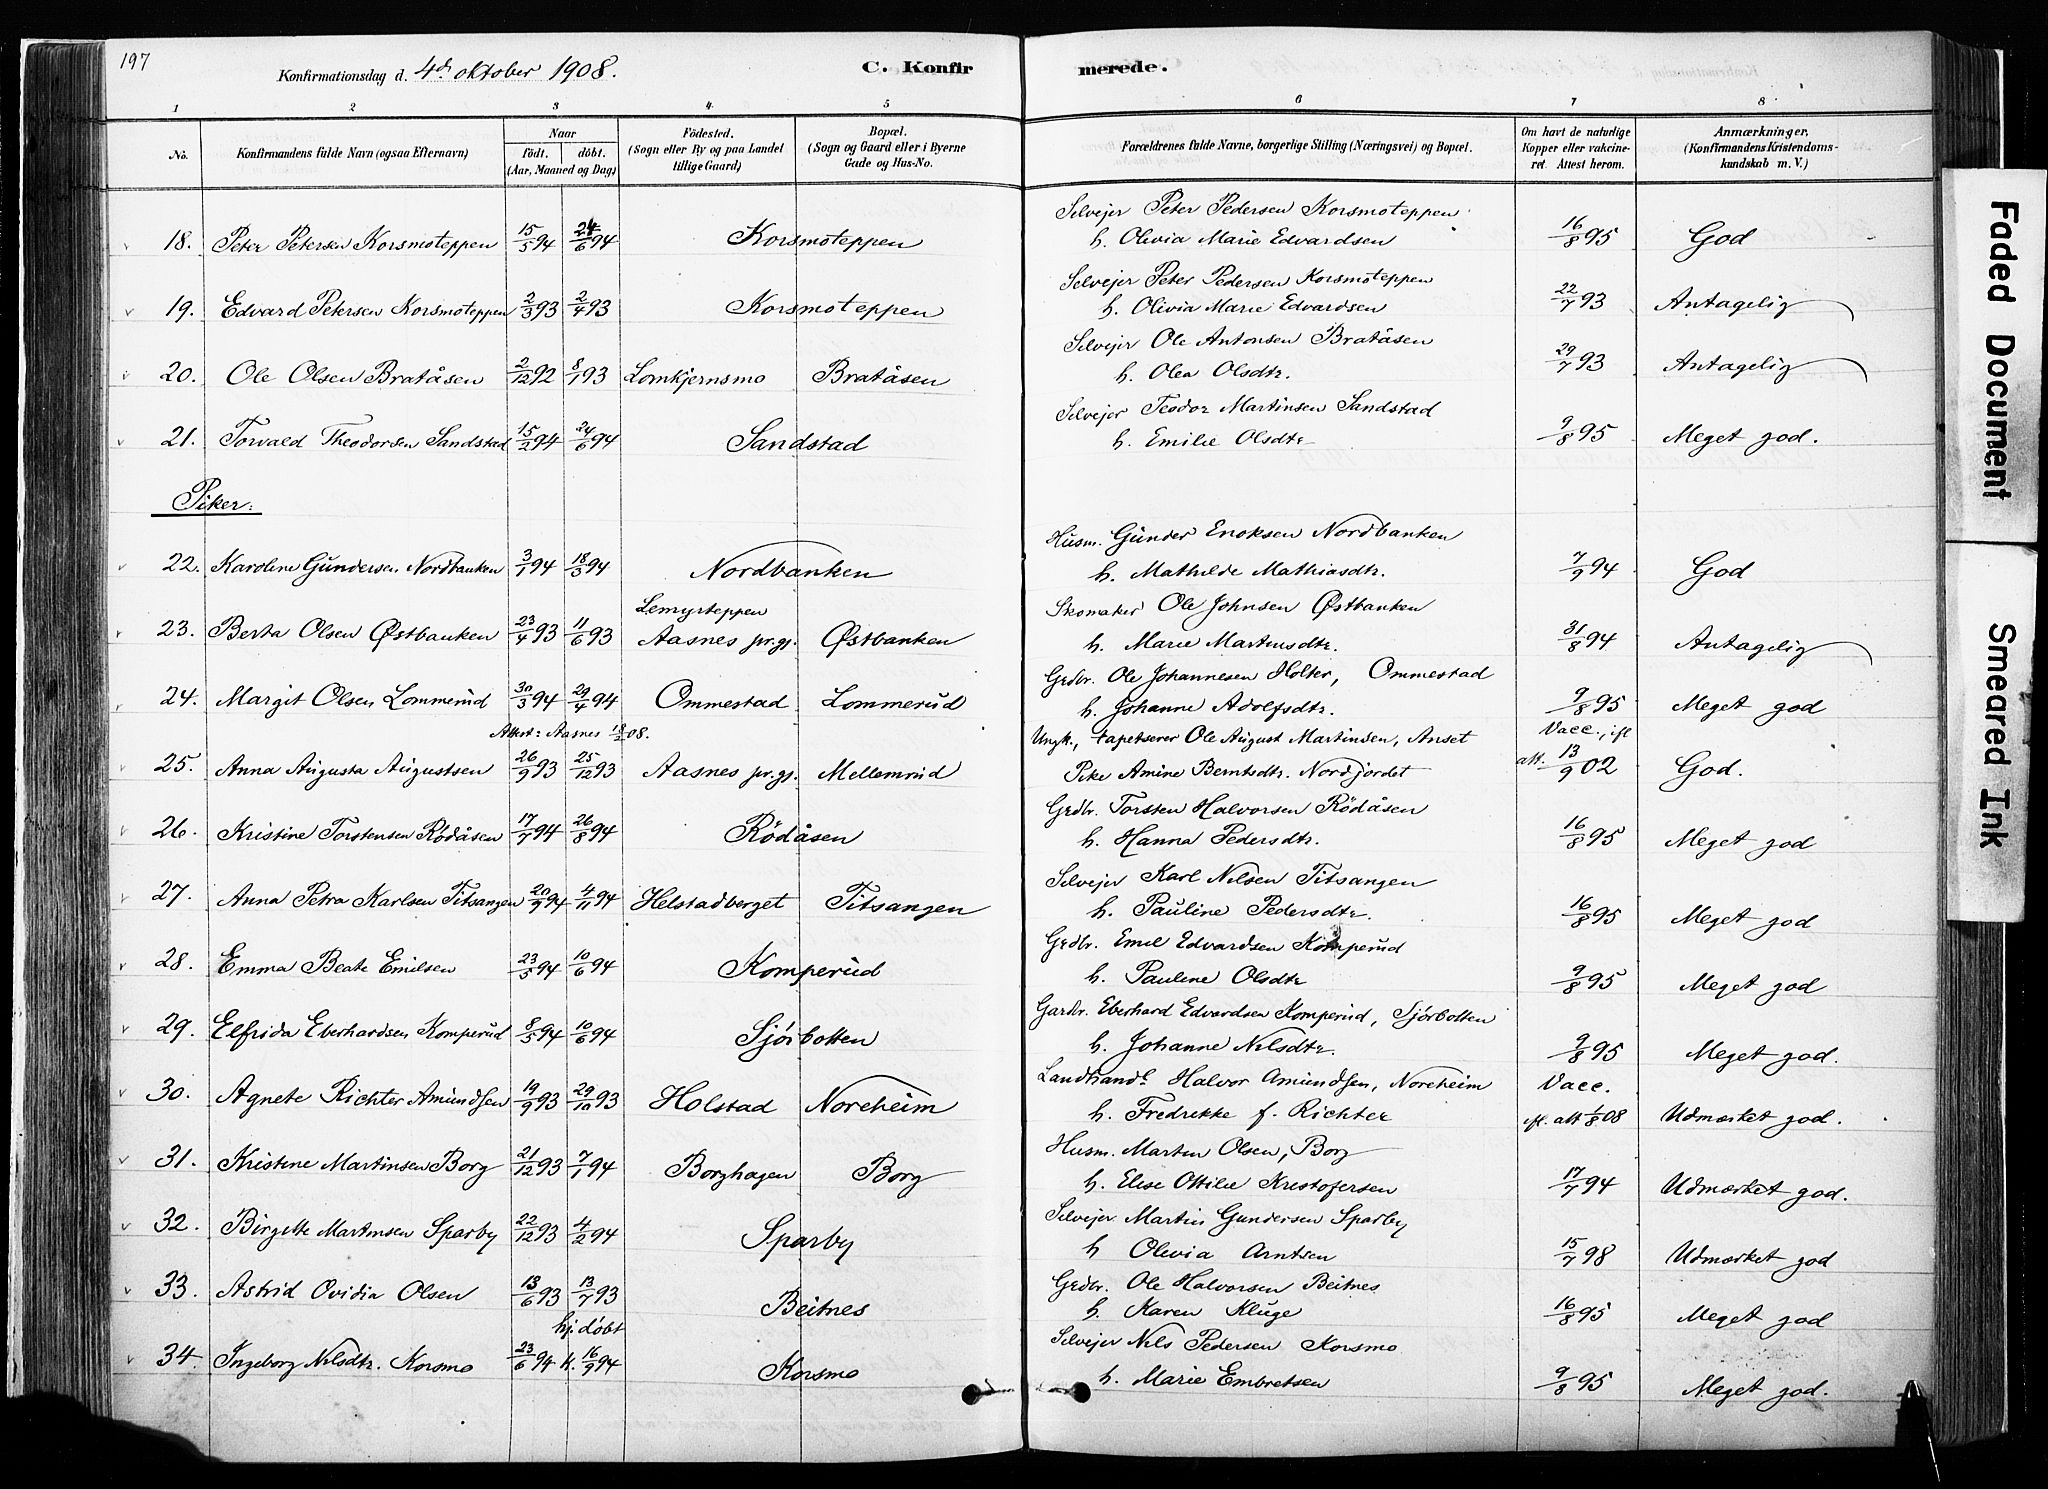 197
Konfirmationsdag d. 4de oktober 1908.
C. Konfirmerede.
1 2 3 4. 5 6 7 8.
No. Konfirmandens fulde Navn (ogsaa Efternavn) Naar Födt. döbt. (Aar, Maaned og Dag) Födested. (Sogn eller By og paa Landet tillige Gaard) Bopæl. (Sogn og Gaard eller i Byerne Gade og Hus-No. Forældrenes fulde Navne, borgerlige Stilling (Næringsvei) og Bopæl. Om havt de naturlige Kopper eller vakcineret. Attest herom. Anmærkninger. (Konfirmandens Kristendomskundskab m. V.)
Selvejer Peter Pedersen Korsmoteppen
18. Peter Petersen Korsmoteppen 15/5 94 24/6 94 Korsmoteppen h. Olivia Marie Edvardsen 16/8 95 God
Selvejer Peter Pedersen Korsmoteppen
19. Edvard Petersen Korsmoteppen 2/3 93 2/4 93 Korsmoteppen h. Olivia Marie Edvardsen 22/7 93 Antagelig
Selvejer Ole Antonsen Bratåsen
20. Ole Olsen Bratåsen 2/12 92 8/1 93 Lomkjernsmo Bratåsen h. Olea Olsdtr. 29/7 93 Antagelig
Selvejer Teodor Martinsen Sandstad
21. Torvald Theodorsen Sandstad 15/2 94 24/6 94 Sandstad h. Emilie Olsdtr 9/8 95 Meget god.
Piker:
Husm. Gunder Enoksen Nordbanken
22. Karoline Gundersen Nordbanken 3/1 94 18/3 94 Nordbanken h. Mathilde Mathiasdtr. 7/9 94 God
Lemyrteppen Skomaker Ole Johnsen Østbanken
23. Berta Olsen Østbanken 23/4 93 11/6 93 Aasnes pr.gj. Østbanken h. Marie Martinsdtr. 31/8 94 Antagelig
Grdbr. Ole Johannesen Holter, Ommestad
24. Margit Olsen Lommerud 30/3 94 29/4 94 Ommestad Lommerud h. Johanne Adolfsdtr. 9/8 95 Meget god
Attest: Aasnes 18/2 08. Ungk., tapetserer Ole August Martinsen, Anset Vacc., ifl
25. Anna Augusta Augustsen 26/9 93 25/12 93 Aasnes pr.gj. Mellemrud Pike Amine Berntsdtr. Nordjordet att. 13/9 02 God.
Grdbr. Torsten Halvorsen Rödåsen
26. Kristine Torstensen Rödåsen 17/7 94 26/8 94 Rödåsen h. Hanna Pedersdtr. 16/8 95 Meget god
Selvejer Karl Nilsen Titsangen
27. Anna Petra Karlsen Titsangen 20/9 94 4/11 94 Helstadberget Titsangen h. Pauline Pedersdtr. 16/8 95 Meget god
Grdbr. Emil Edvardsen Komperud
28. Emma Beate Emilsen 23/5 94 10/6 94 Komperud h. Pauline Olsdtr 9/8 95 Meget god
Gardbr. Eberhard Edvardsen Komperud, Sjörbotten
29. Elfrida Eberhardsen Komperud 8/5 94 10/6 94 Sjörbotten h. Johanne Nilsdtr. 9/8 95 Meget god.
Landhandl. Halvor Amundsen, Noreheim Vacc.
30. Agnete Richter Amundsen 19/9 93 29/10 93 Holstad Noreheim h. Fredrekke f. Richter ifl. att 1/8 08 Udmærket god.
Husm. Martin Olsen, Borg
31. Kristine Martinsen Borg 21/12 93 7/1 94 Borghagen Borg h. Elise Ottilie Kristofersen 17/7 94 Udmærket god.
Selvejer Martin Gundersen Sparby
32. Birgitte Martinsen Sparby 22/12 93 4/2 94 Sparby h Olivia Arntsen 15/7 98 Udmærket god
Grdbr. Ole Halvorsen Beitnes
33. Astrid Ovidia Olsen 13/6 93 13/7 93 Beitnes h. Karen Kluge 16/8 95 Meget god
hj. döbt Selvejer Nils Pedersen Korsmo
34. Ingeborg Nilsdtr. Korsmo 23/6 94 k. 16/9 94 Korsmo h. Marie Embretsen 9/8 95 Meget god.
Faded Document
Smeared Ink